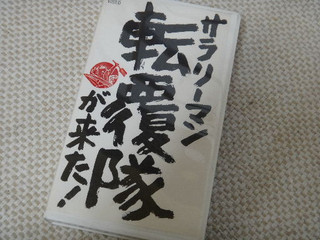 サラリーマン
転覆隊
が来た!